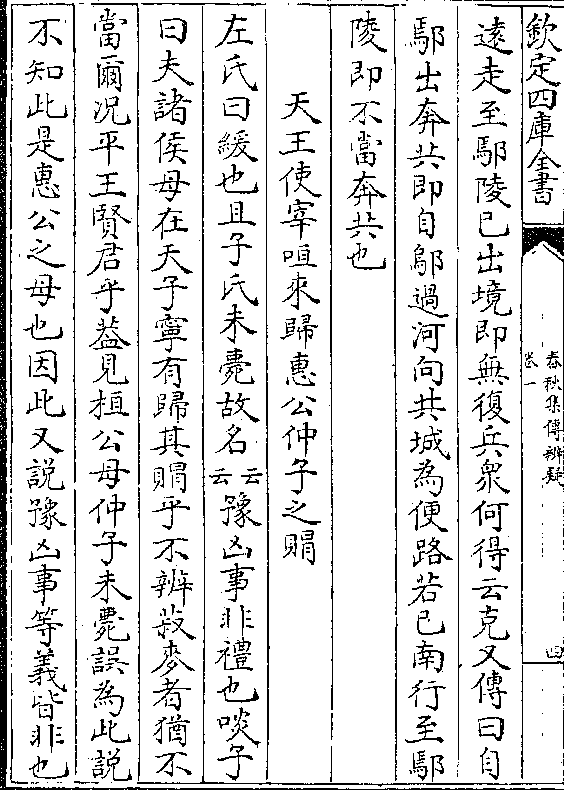 欽定四庫全書
春秋集傳辨疑
卷一
四
遠走至鄢陵已出境即無復兵衆何得云克又傳曰自
鄢出奔共即自鄔過河向共城為便路若已南行至鄢
陵即不當奔共也
天王使宰咺來歸惠公仲子之賵
左氏曰緩也且子氏未薨故名云云豫凶事非禮也啖子
曰夫諸侯母在天子寧有歸其賵乎不辨菽麥者猶不
當爾况平王賢君乎葢見桓公母仲子未薨誤為此説
不知此是惠公之母也因此又説豫凶事等義皆非也